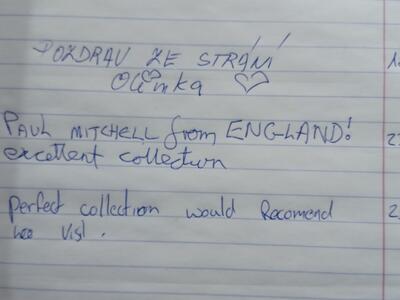 POZDRAV ZE STRÁNÍ
Olinka
PAUL MITCHELL from ENGLAND!
excellent collection
perfect collection would Recomend